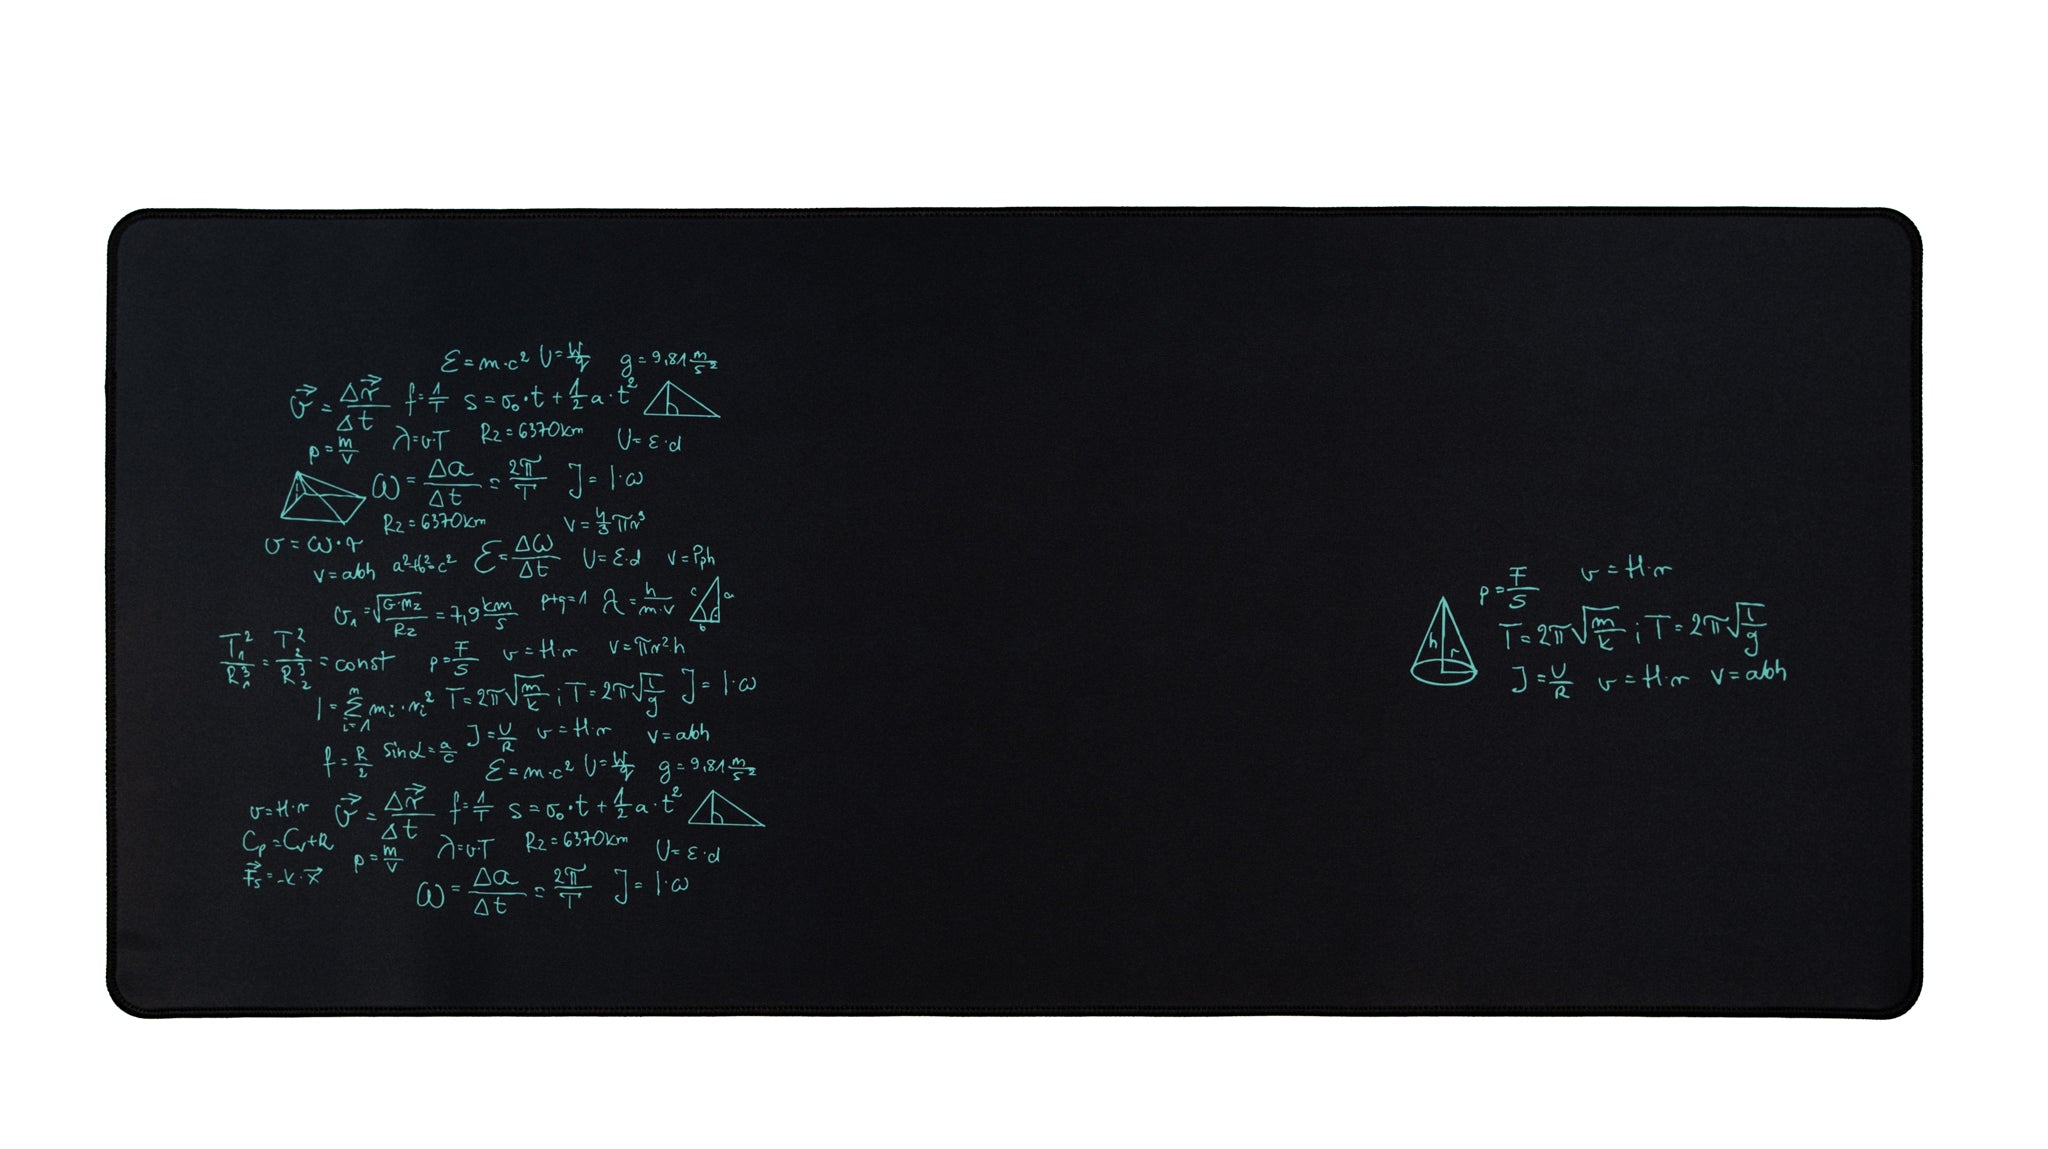 Ɛ = m·c² U = W/q g = 9,81 m/s²
v⃗ = Δr⃗/Δt f = 1/T s = v₀·t + 1/2 a·t² h
p = m/V λ = v·T Rz = 6370km U = ε·d
ω = Δa/Δt = 2π/T J = I·ω
Rz = 6370km V = 4/3 πr³
v = ω·r
V = abh a²+b²=c² Ɛ = Δω/Δt U = Ɛ·d V = Pph
v₁ = √(G·Mz/Rz) = 7,9 km/s p+q=1 λ = h/m·v c a b
T₁²/R₁³ = T₂²/R₂³ = const p = F/S v = H·r V = πr²h
I = Σ i=1 n mᵢ·rᵢ² T = 2π√(m/k) ; T = 2π√(l/g) J = I·ω
f = R/2 sinα = a/c J = U/R v = H·r V = abh
Ɛ = m·c² U = W/q g = 9,81 m/s²
v = H·r v⃗ = Δr⃗/Δt f = 1/T s = v₀·t + 1/2 a·t² h
Cp = Cv + R p = m/V λ = v·T Rz = 6370km U = ε·d
F⃗s = -k·x⃗ ω = Δa/Δt = 2π/T J = I·ω
p = F/S v = H·r
h r T = 2π√(m/k) ; T = 2π√(l/g)
J = U/R v = H·r V = abh